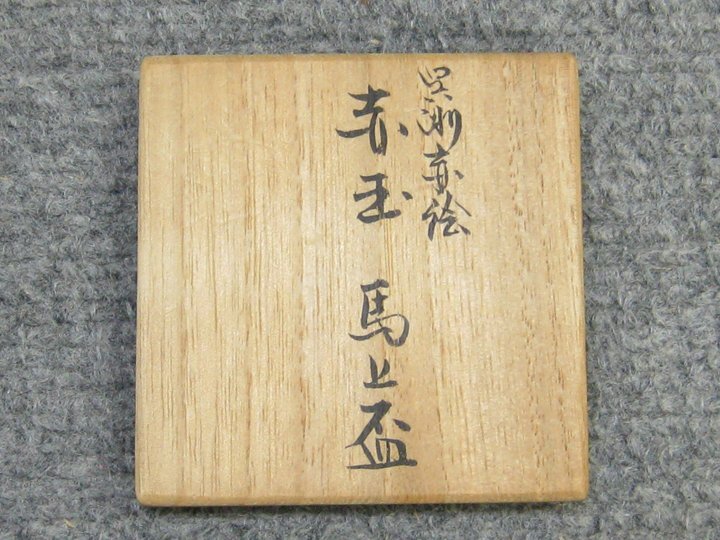 呉洲赤絵
赤玉 馬上盃